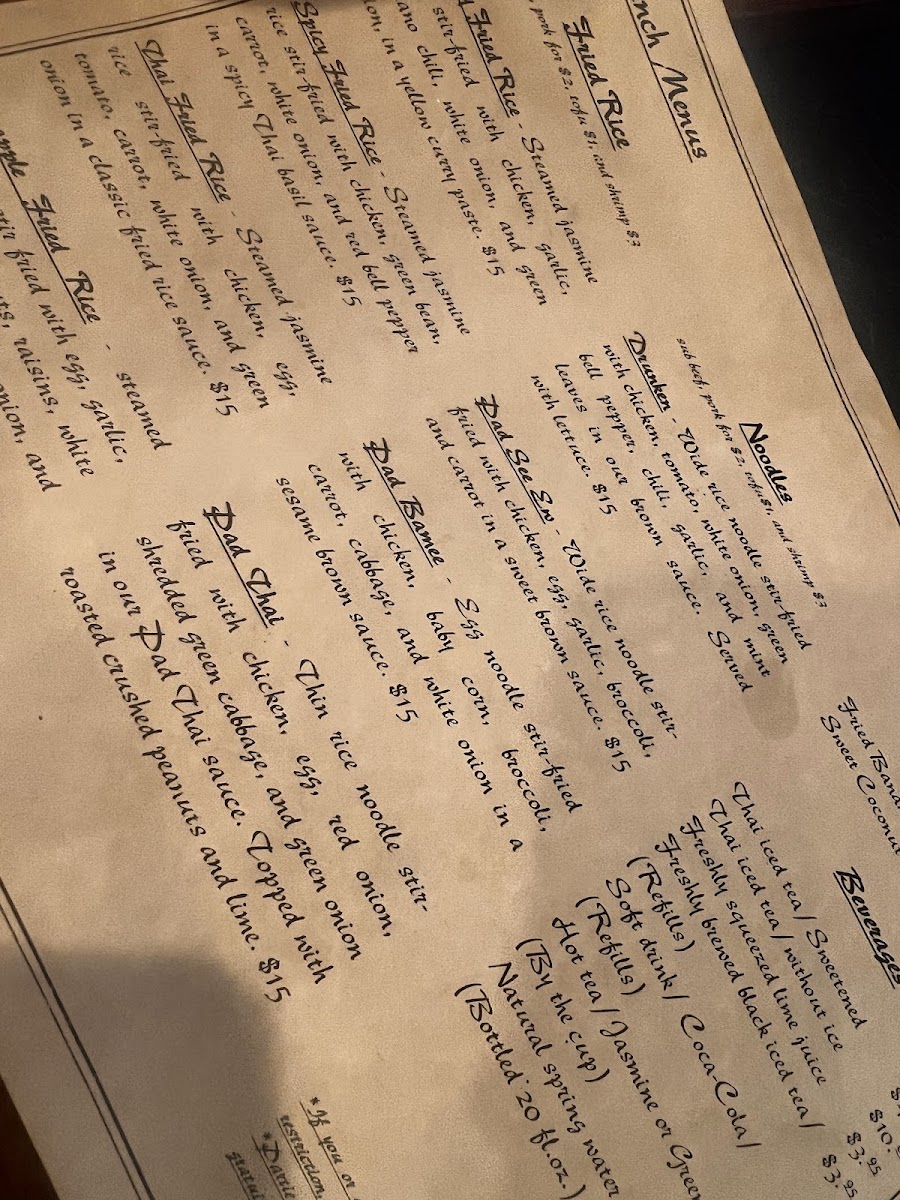 nch Menus
Fried Rice
pork for $2, tofu $1, and shrimp $3
Fried Rice - Steamed jasmine
stir-fried with chicken, garlic,
ano chili, white onion, and green
ion, in a yellow curry paste. $15
Spicy Fried Rice - Steamed jasmine
rice stir-fried with chicken, green bean,
carrot, white onion, and red bell pepper
in a spicy Thai basil sauce. $15
Thai Fried Rice - Steamed jasmine
rice stir-fried with chicken, egg,
tomato, carrot, white onion, and green
onion in a classic fried rice sauce. $15
apple Fried Rice - steamed
stir fried with egg, garlic,
raisins, white
onion, and
Noodles
sub beef, pork for $2, tofu $1, and shrimp $3
Drunken - Wide rice noodle stir-fried
with chicken, tomato, white onion, green
bell pepper, chili, garlic, and mint
leaves in our brown sauce. Served
with lettuce. $15
Pad See Ew - Wide rice noodle stir-
fried with chicken, egg, garlic, broccoli,
and carrot in a sweet brown sauce. $15
Pad Bamee - Egg noodle stir-fried
with chicken, baby corn, broccoli,
carrot, cabbage, and white onion in a
sesame brown sauce. $15
Pad Thai - Thin rice noodle stir-
fried with chicken, egg, red onion,
shredded green cabbage, and green onion
in our Pad Thai sauce. Topped with
roasted crushed peanuts and lime. $15
Fried Bana
Sweet Coconut
Beverages
Thai iced tea/ Sweetened
Thai iced tea/ without ice
Freshly squeezed lime juice
Freshly brewed black iced tea/
(Refills)
Soft drink/ Coca-Cola/
(Refills)
Hot tea/ Jasmine or Green
(By the cup)
Natural spring water
(Bottled 20 fl.oz.)
$10.
$3.95
$3.95
*If you or
restriction,